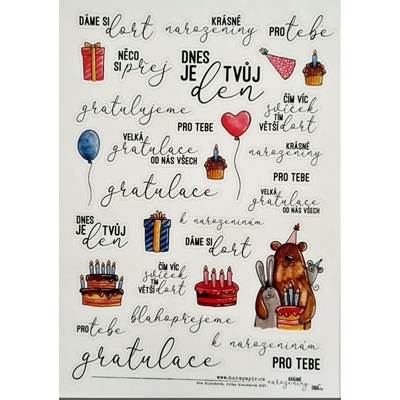 DÁME SI dort
KRÁSNÉ narozeniny
PRO tebe
NĚCO SI přej
DNES JE TVŮJ den
gratulujeme
ČÍM VÍC svíček TÍM VĚTŠÍ dort
PRO TEBE
VELKÁ gratulace OD NÁS VŠECH
KRÁSNÉ narozeniny
PRO TEBE
gratulace
VELKÁ gratulace OD NÁS VŠECH
DNES JE TVŮJ den
k narozeninám
DÁME SI dort
ČÍM VÍC svíček TÍM VĚTŠÍ dort
PRO tebe
blahopřejeme
k narozeninám
gratulace
PRO TEBE
www.hurapapir.cz
KRÁSNÉ narozeniny